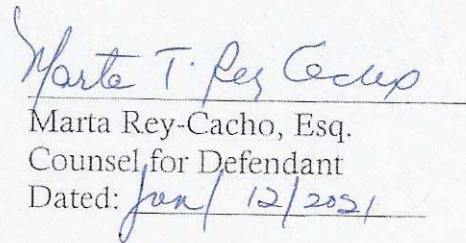 Marta T. Rey Cacho
Marta Rey-Cacho, Esq.
Counsel for Defendant
Dated: Jan/ 12/2021